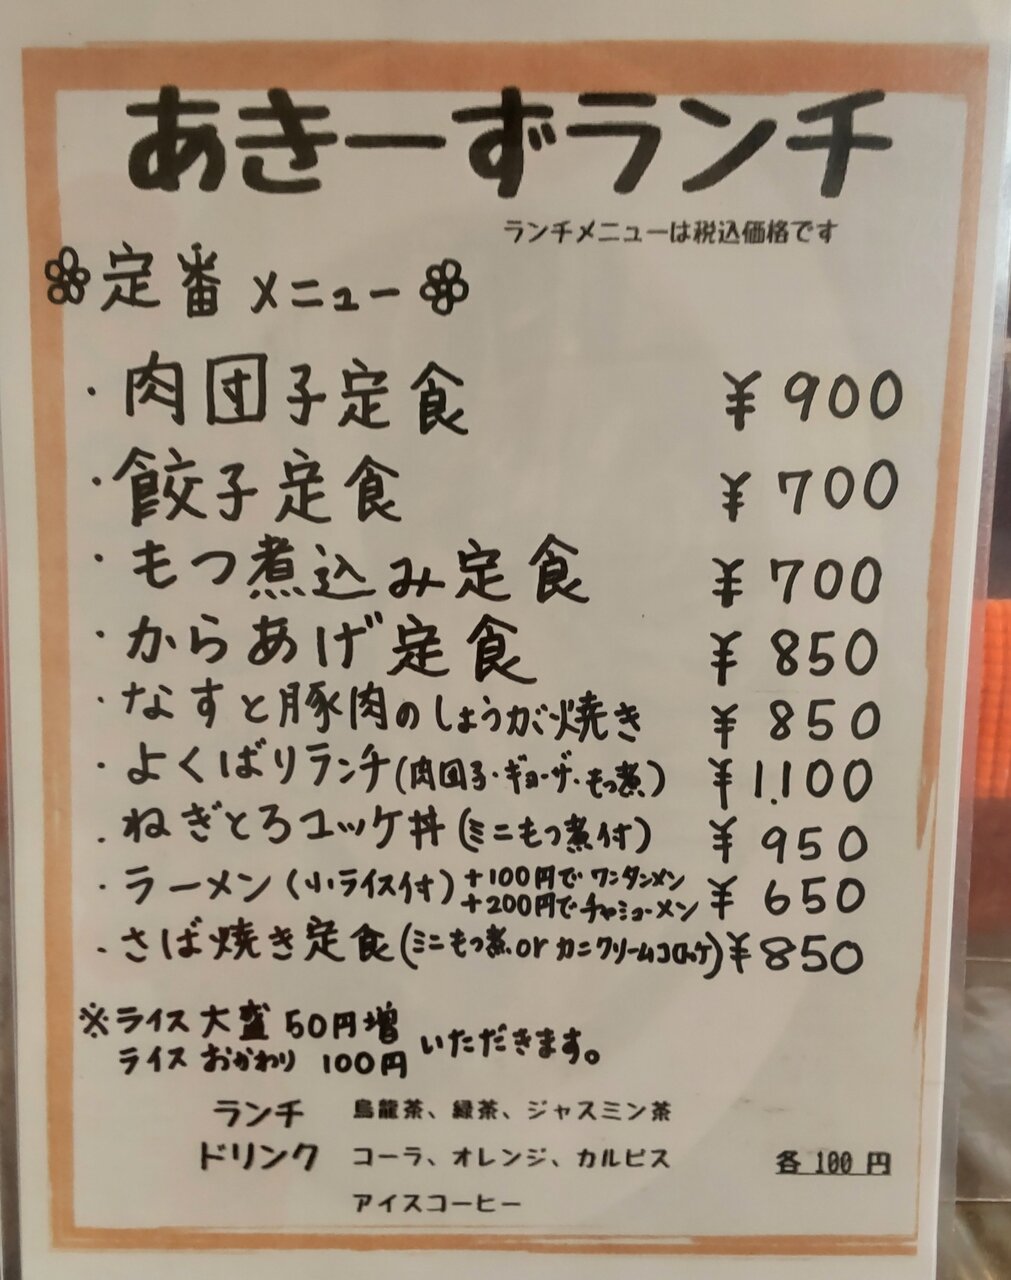 あきーずランチ
ランチメニューは税込価格です
定番メニュー
・肉団子定食 ¥900
・餃子定食 ¥700
・もつ煮込み定食 ¥700
・からあげ定食 ¥850
・なすと豚肉のしょうが焼き ¥850
・よくばりランチ(肉団子・ギョーザ・もつ煮) ¥1.100
・ねぎとろユッケ丼(ミニもつ煮付) ¥950
・ラーメン(小ライス付) +100円でワンタンメン ¥650
+200円でチャシューメン
・さば焼き定食(ミニもつ煮 or カニクリームコロッケ) ¥850
※ライス大盛 50円増
ライスおかわり 100円 いただきます。
ランチ 烏龍茶、緑茶、ジャスミン茶
ドリンク コーラ、オレンジ、カルピス 各100円
アイスコーヒー